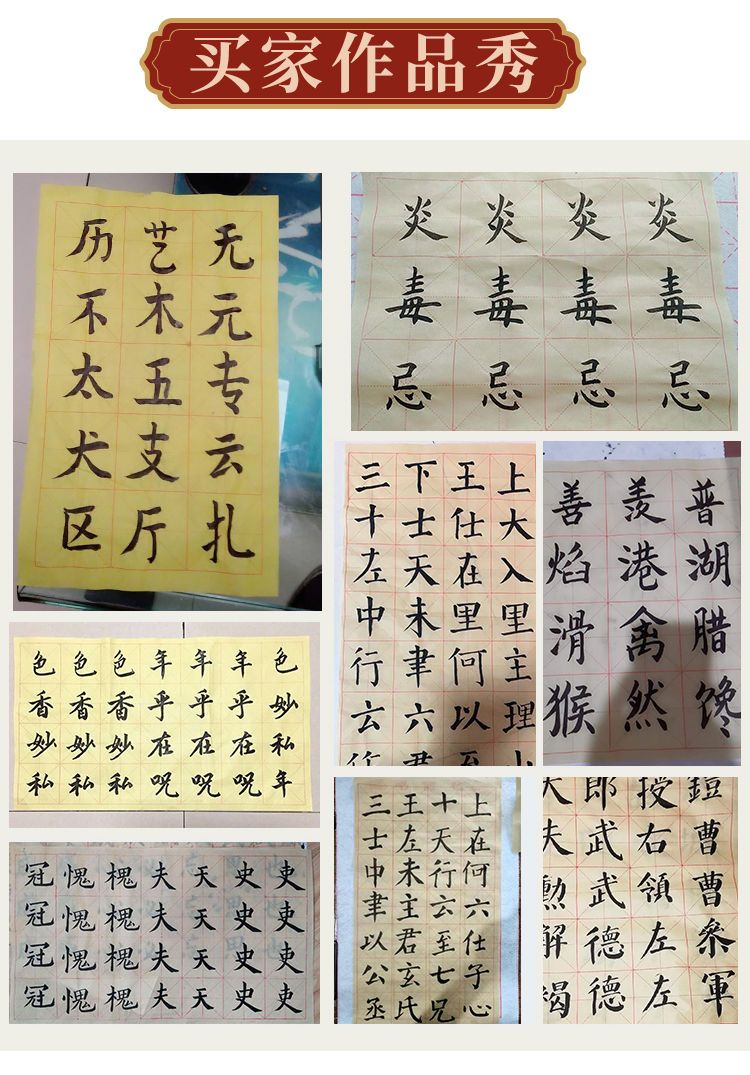 买家作品秀
历艺无
不木元
太五专
犬支云
区厅扎
炎炎炎炎
毒毒毒毒
忌忌忌忌
三下王上
十士仕大
左天在入
中未里里
行聿何主
云六以理
至
善羡普
焰港湖
滑禽腊
猴然馋
色色色年年年色
香香香乎乎乎妙
妙妙妙在在在私
私私私呪呪呪年
冠愧槐夫天史吏
冠愧槐夫天史吏
冠愧槐夫天史吏
冠愧槐夫天史吏
三王十上
士左天在
中未行何
聿主云六
以君至仕
公玄七子
丞氏兄心
大郎授鎧
夫武右曹
勲武領曹
解德左参
褐德左軍